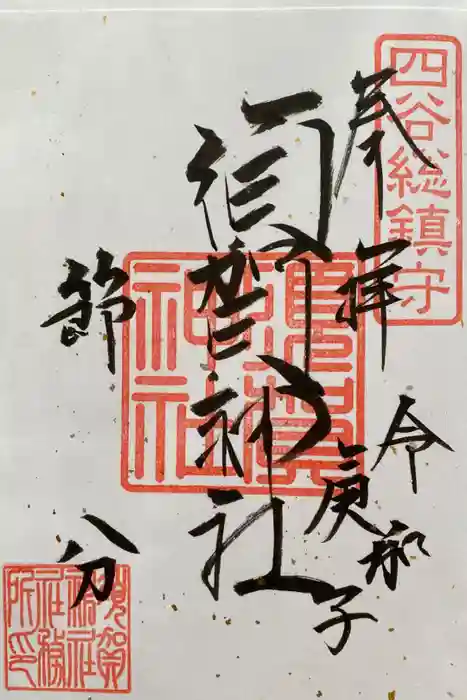 四谷総鎮守
奉拝
令和
庚子
須賀神社
節分
須賀
神社
社務
所印